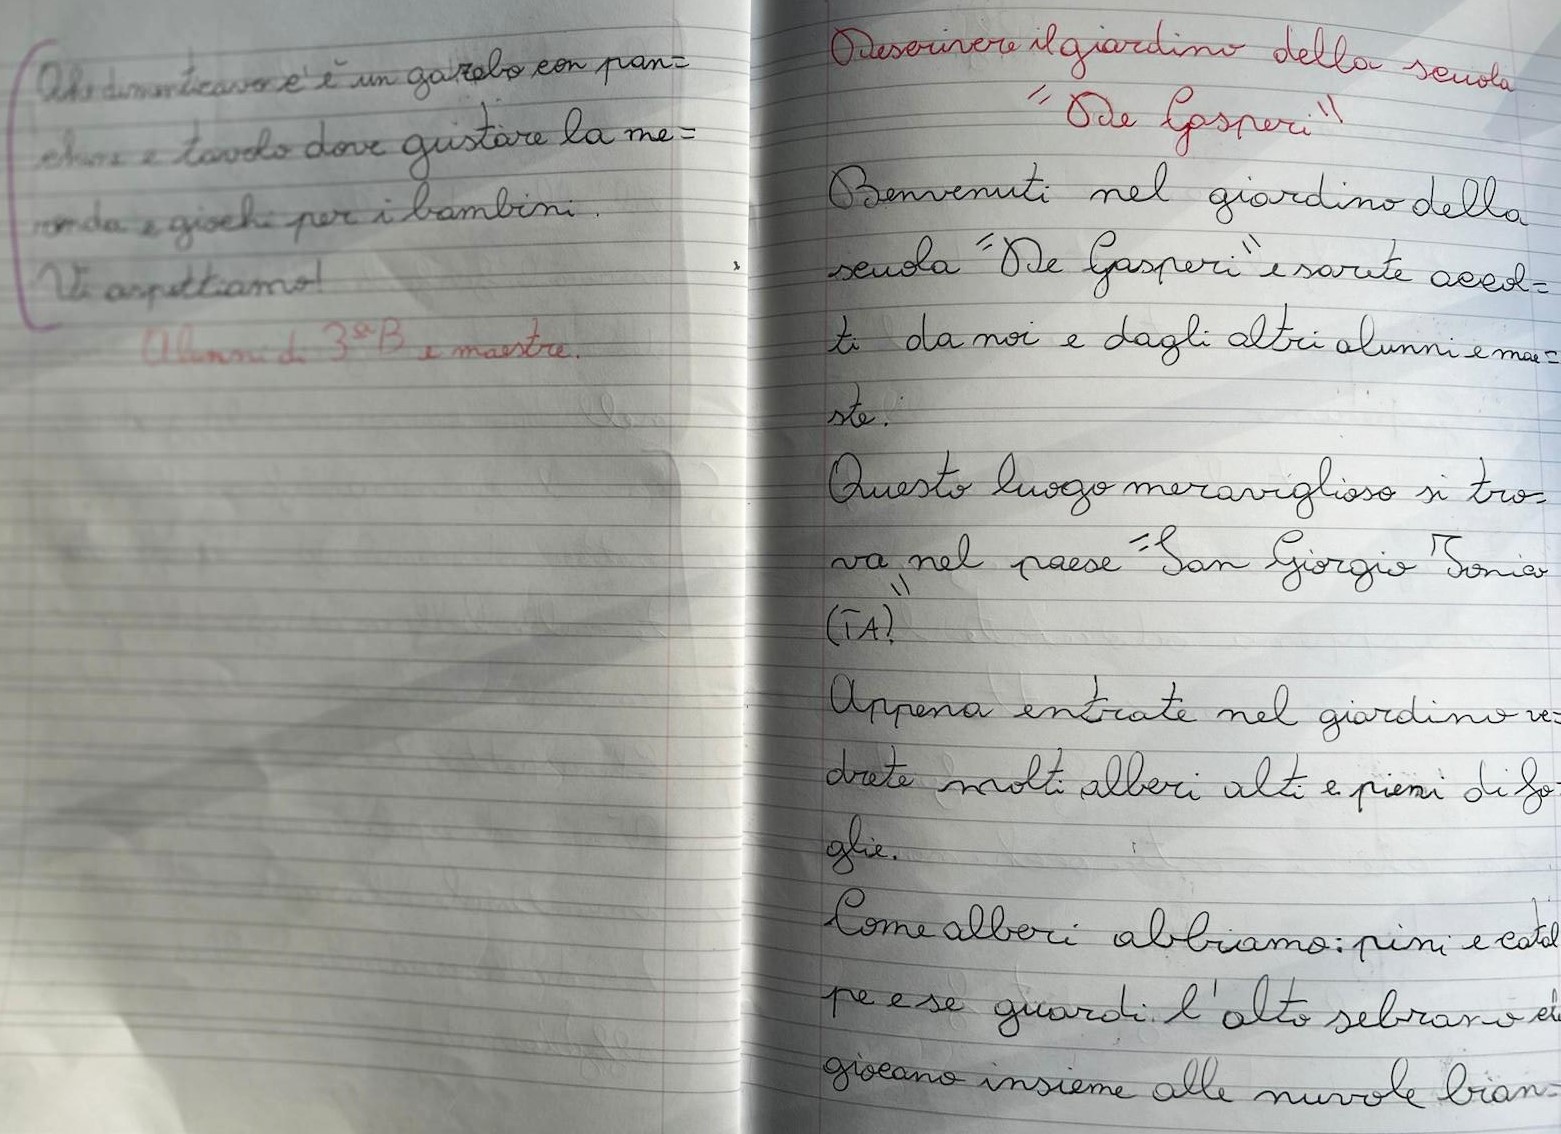 Ah dimenticavo c'è un gazebo con pan=
chine e tavolo dove gustare la me=
renda e giochi per i bambini.
Vi aspettiamo!
Alunni di 3ªB e maestre.
Descrivere il giardino della scuola
"De Gasperi"
Benvenuti nel giardino della
scuola "De Gasperi" e sarete accol=
ti da noi e dagli altri alunni e mae=
ste.
Questo luogo meraviglioso si tro=
va nel paese "San Giorgio Ionico
(TA)"
Appena entrate nel giardino ve=
drete molti alberi alti e pieni di fo=
glie.
Come alberi abbiamo: pini e catal
pe e se guardi l'alto sebrano ch
giocano insieme alle nuvole bian=